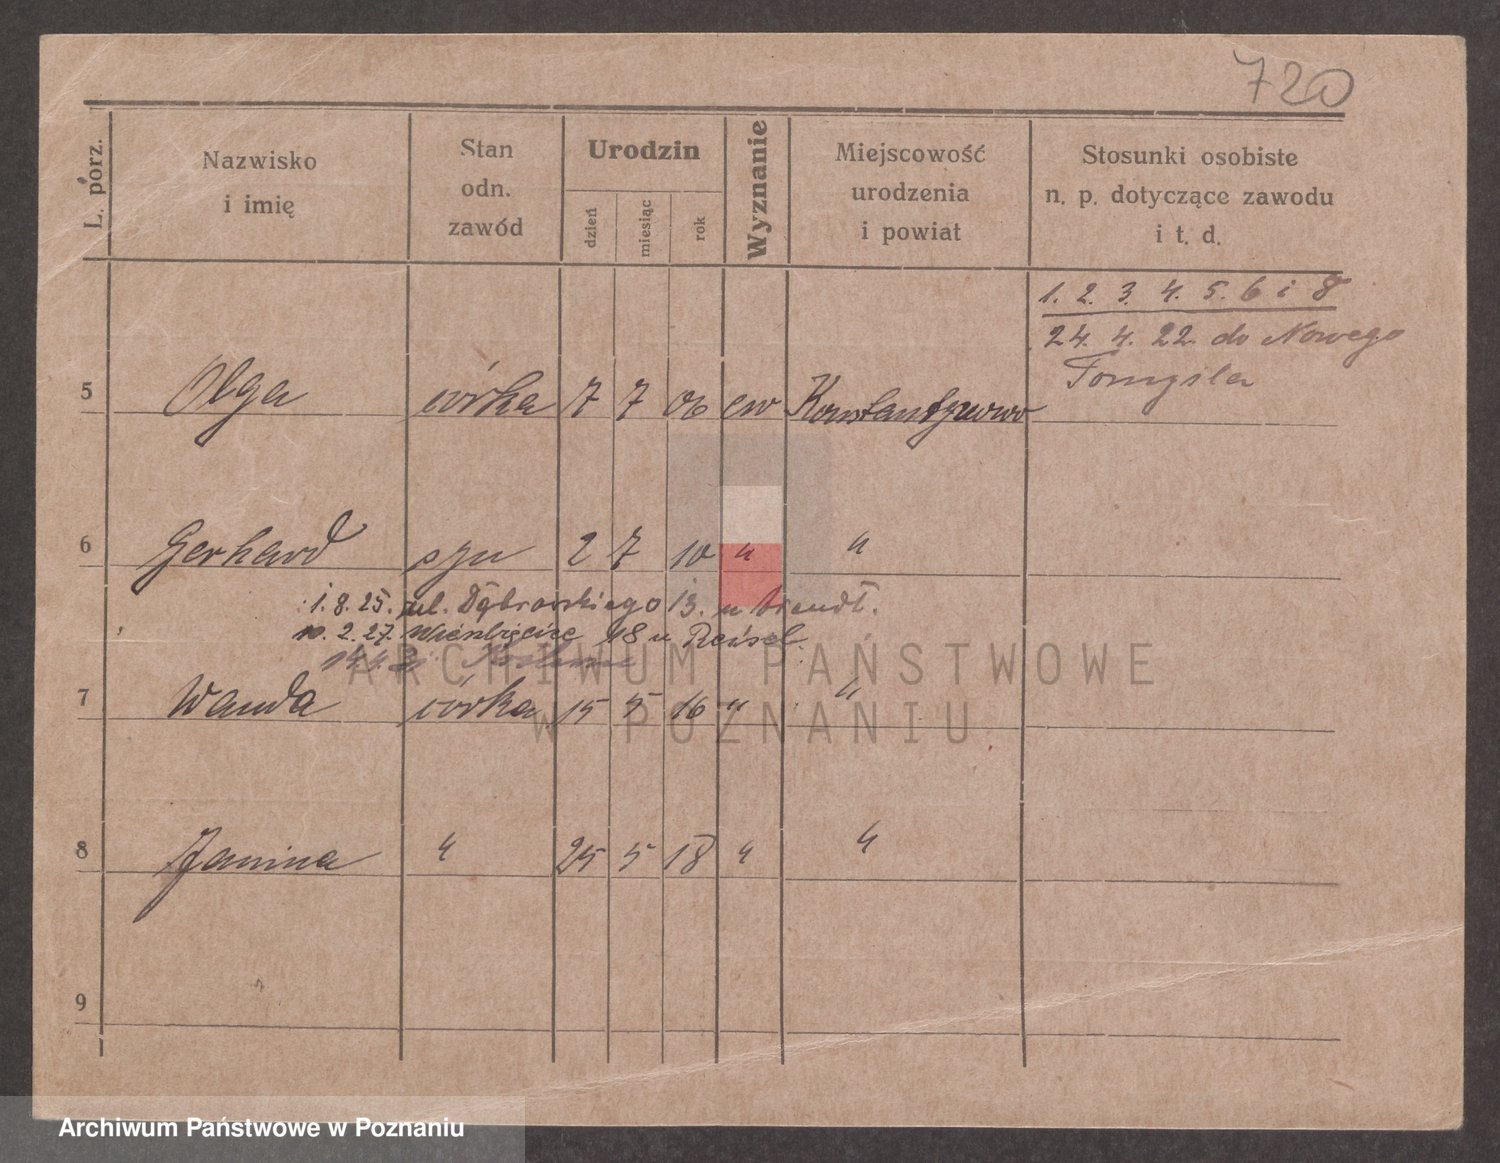 720
L. porz.
Nazwisko
i imię
Stan
odn.
zawód
Urodzin
dzień
miesiąc
rok
Wyznanie
Miejscowość
urodzenia
i powiat
Stosunki osobiste
n. p. dotyczące zawodu
i t. d.
1. 2. 3. 4. 5. 6 i 8
24. 4. 22 do Nowego
Tomyśla
5 Olga córka 7 7 06 ew
6 Gerhard syn 2 7 10 " "
1. 8. 25. ul. Dąbrowskiego 13. u
2. 27. 18 u
7 Wanda córka 15 5 16 " "
8 Janina " 25 5 18 " "
9
ARCHIWUM PAŃSTWOWE
W POZNANIU
Archiwum Państwowe w Poznaniu